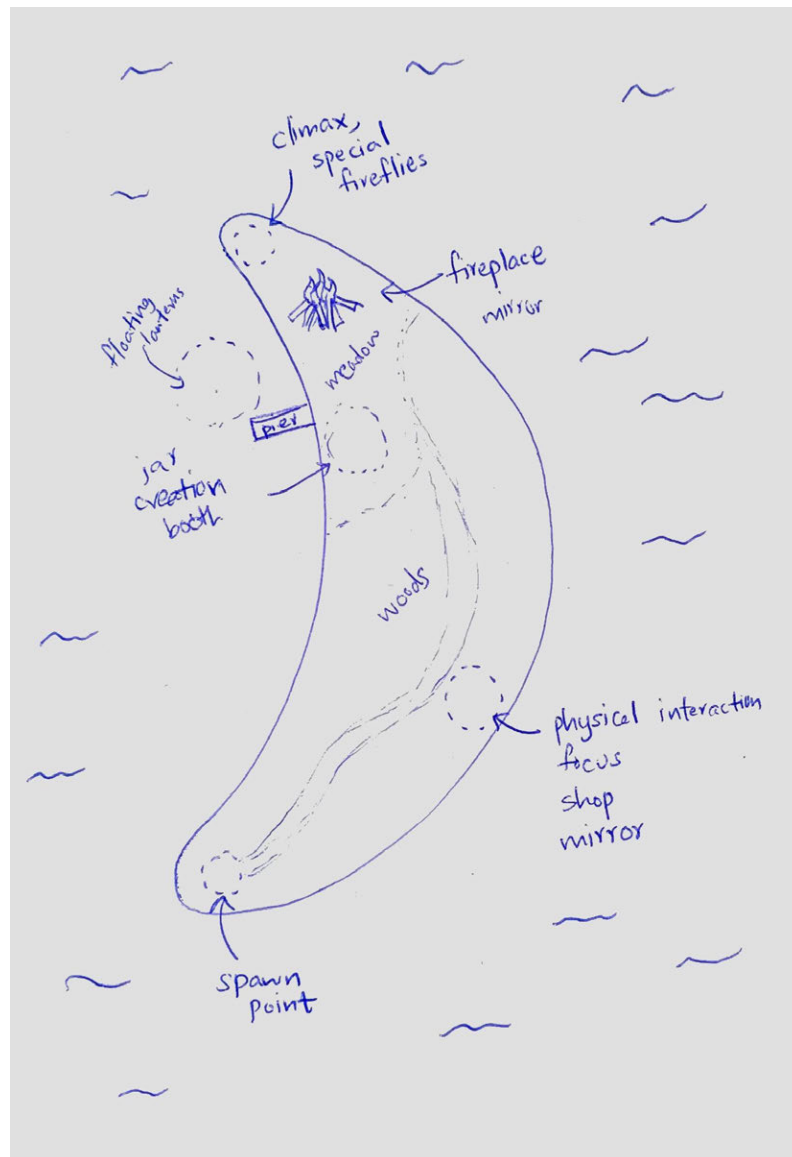 climax,
special
fireflies
fireplace
mirror
floating
lanterns
meadow
pier
jar
creation
booth
woods
physical interaction
focus
shop
mirror
spawn
point